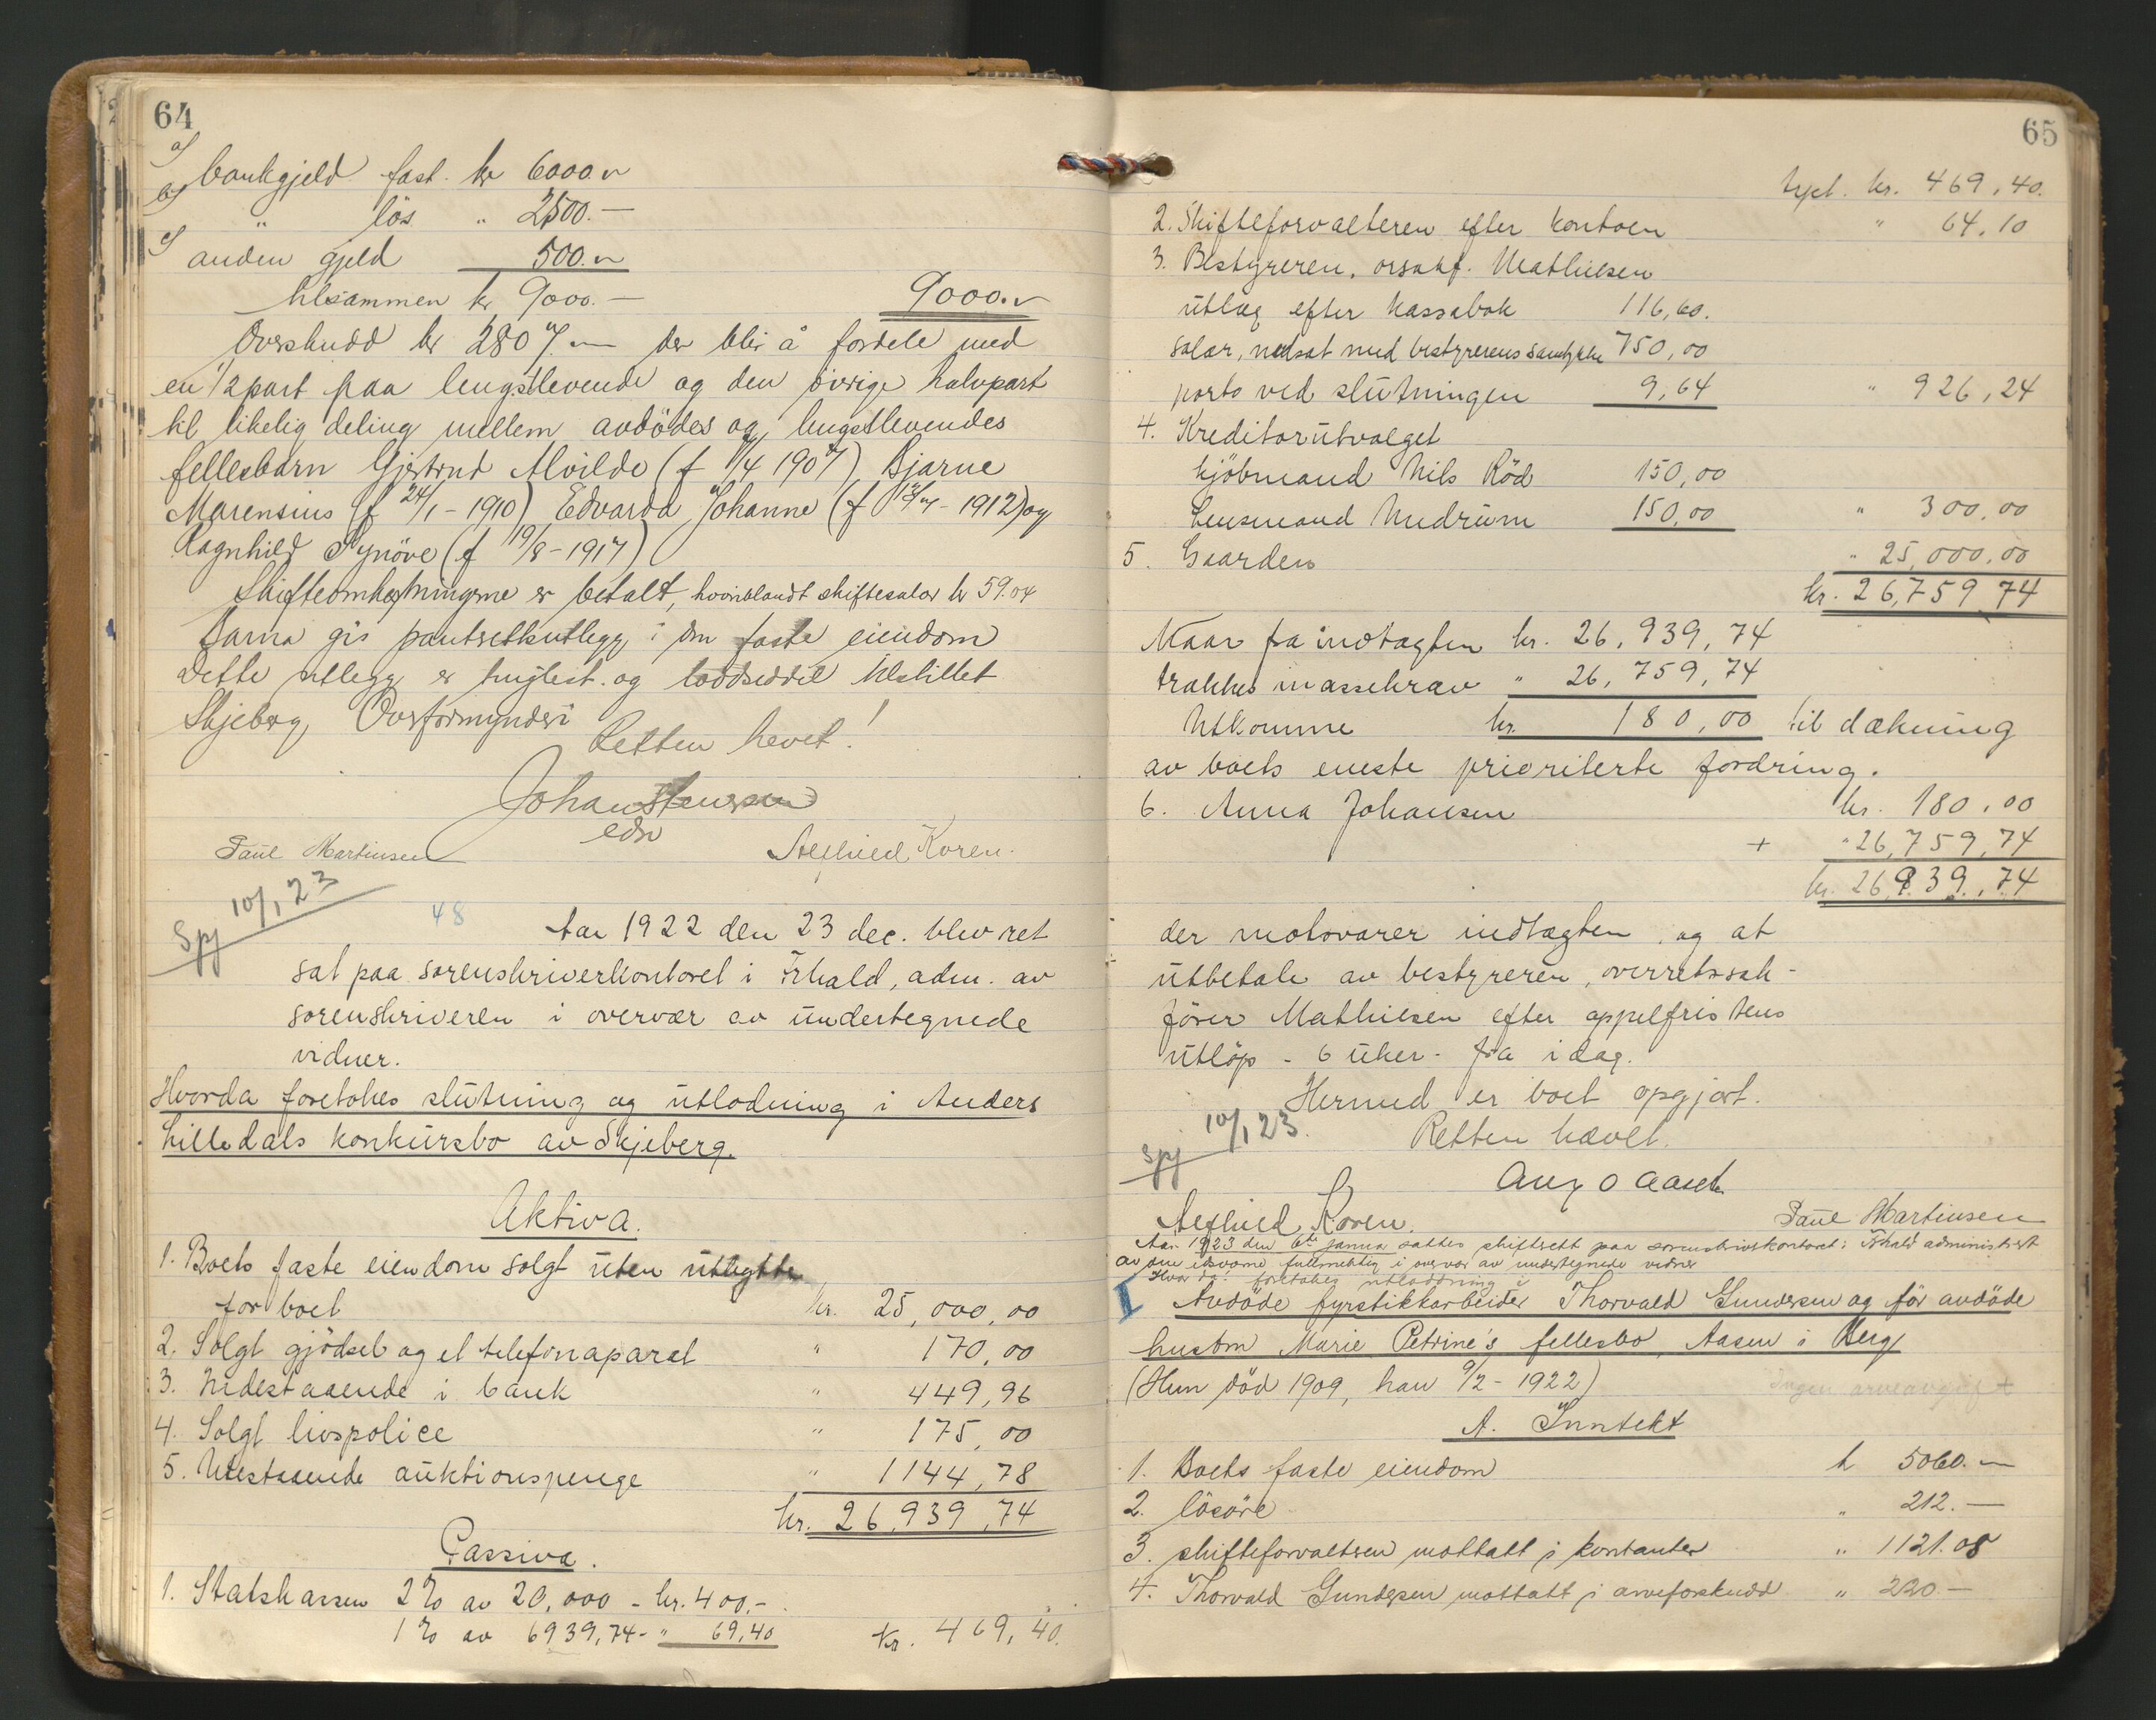 64
a) bankgjeld fast. kr 6000.-
b) " løs " 2500.-
c) anden gjeld 500.-
tilsammen kr 9000.- 9000.-
Overskudd kr 2807.- der blir å fordele med
en 1/2 part paa lengstlevende og den øvrige halvpart
til likelig deling mellem avdødes og lengstlevendes
fellesbarn Gjertrud Alvilde (f 1/4 1907), Bjarne
Marensius (f 24/1 - 1910) Edvarda Johanne (f - 1912) og
Ragnhild Synöve (f 19/8 - 1917)
Skifteomkostningene er betalt, hvoriblandt skiftesalar kr 59.04
Barna gis pantrettsutlegg i den faste eiendom
Dette utlegg er tinglest. og loddseddel tilstillet
Skjeberg Overformynderi
Retten hevet!
Johan Stenersen
edsv
Paul Martinsen Koren.
Spj 10/1 23
48
Aar 1922 den 23 dec. blev ret
sat paa sorenskriverkontoret i Frhald, adm. av
sorenskriveren i overvær av undertegnede
vidner.
Hvorda foretokes slutning og utlodning i Anders
Lilledals konkursbo av Skjeberg.
Aktiva.
1. Boets faste eiendom solgt uten utbytte
for boet kr. 25,000,00
2. Solgt gjödsel og et telefonaparat " 170,00
3. Indestaaende i bank " 449,96
4. Solgt livspolice " 175,00
5. Utestaaende auktionspenge " 1144,78
kr. 26,939,74
Passiva.
1. Statskassen 2% av 20,000 - kr. 400,-
1% av 6939,74 - " 69,40 kr. 469,40.
65
trpt. kr. 469,40.
2. Skifteforvalteren efter kontoen " 64,10
3. Bestyreren, orsakf. Mathiesen
utlæg efter kassabok 116,60.
salær, nedsat med bestyrerens samtykke 750,00
porto ved slutningen 9,64 " 926,24
4. Kreditorutvalget
kjöbmand Nils Röd 150,00
Lensmand Mudrum 150,00 " 300,00
5. Gaarden " 25,000,00
kr. 26,759,74
Naar fra indtægten kr. 26,939,74
trækkes massekrav " 26,759,74
Utkomme kr. 180,00 til dækning
av boets eneste prioriterte fordring.
6. Anna Johansen kr. 180,00
+ " 26,759,74
kr. 26,939,74
der motsvarer indtægten og at
utbetale av bestyreren, overretssak-
förer Mathiesen efter appelfristens
utlöp - 6 uker - fra idag.
Hermed er boet opgjort.
Spj 10/1 23.
Retten hævet.
Aug O Aasch
Koren. Paul Martinsen
Aar 1923 den 6te januar sattes skifterett paa sorenskriverkontoret i Frhald administrert
av den edsvorne fullmektig i overvær av undertegnede vidner
Hvorda: foretokes utloddning i
Avdöde fyrstikkarbeider Thorvald Gundersen og för avdöde
hustru Marie Petrine's fellesbo, Aasen i Berg
(Hun död 1909, han 9/2 - 1922) Ingen arveavgift
A. Inntekt
1. Boets faste eiendom k 5060.-
2. lösöre " 212.-
3. skifteforvalteren mottatt i kontanter " 1121.08
4. Thorvald Gundersen mottatt i arveforskudd " 220.-